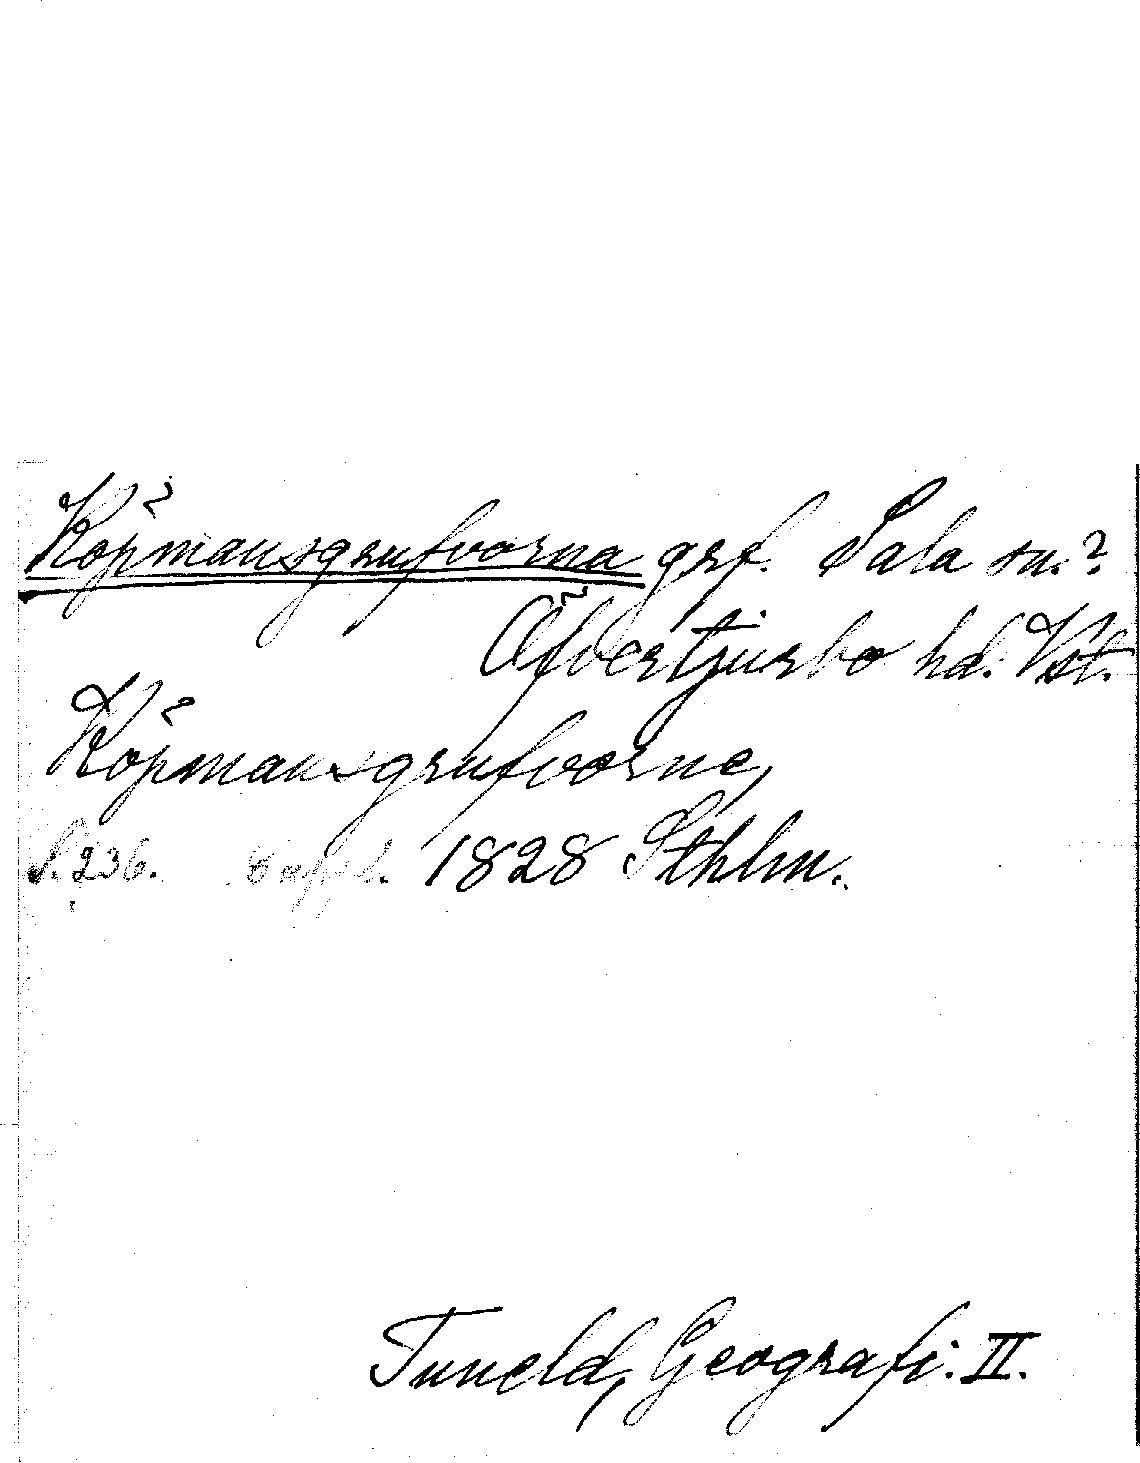 Köpmansgrufvorna grf. Sala sn.?
Öfvertjurbo hd. Vst.
Köpmansgrufvorne,
S. 236. Uppl. 1828 Sthlm.
Tuneld, Geografi. II.